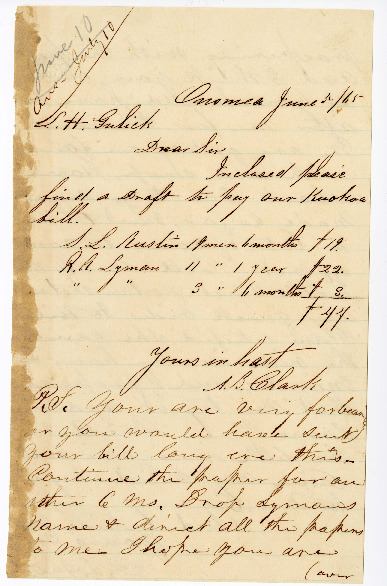 June 10
Ans July 10
Onomea June 5/65
L. H. Gulick
Dear Sir
Inclosed please
find a Draft to pay our Kuokoa
bill.
S. L. Austin 19 men 6 months $19
R. A. Lyman 11 " 1 year $22.
" " 3 " 6 months $ 3.
$44.
Yours in hast
A. B. Clark
P.S. Your are very forbear
or you would have sent
your bill long ere this-
Continue the paper for an
other 6 mo. Drop Lymans
name & direct all the papers
to me I hope you are
(over